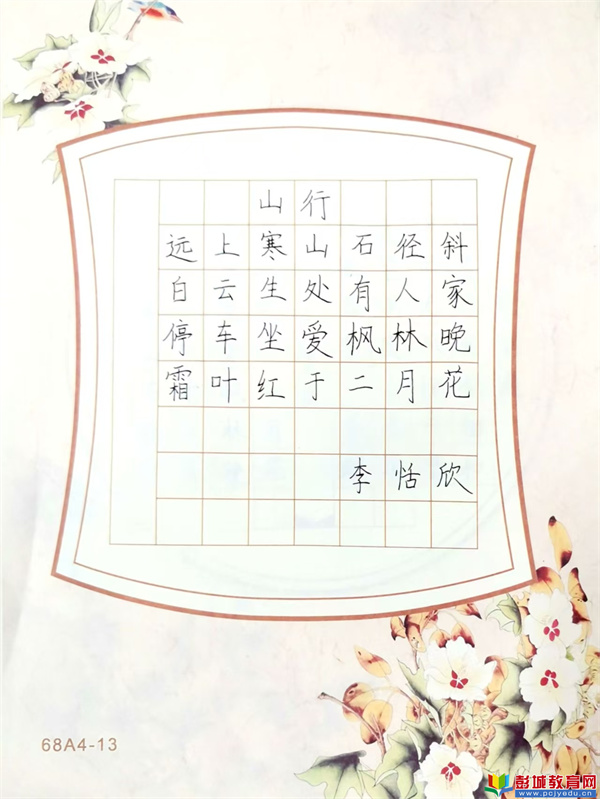 山行
远上寒山石径斜
白云生处有人家
停车坐爱枫林晚
霜叶红于二月花
李恬欣
68A4-13
彭城教育网
www.pcjyedu.cn